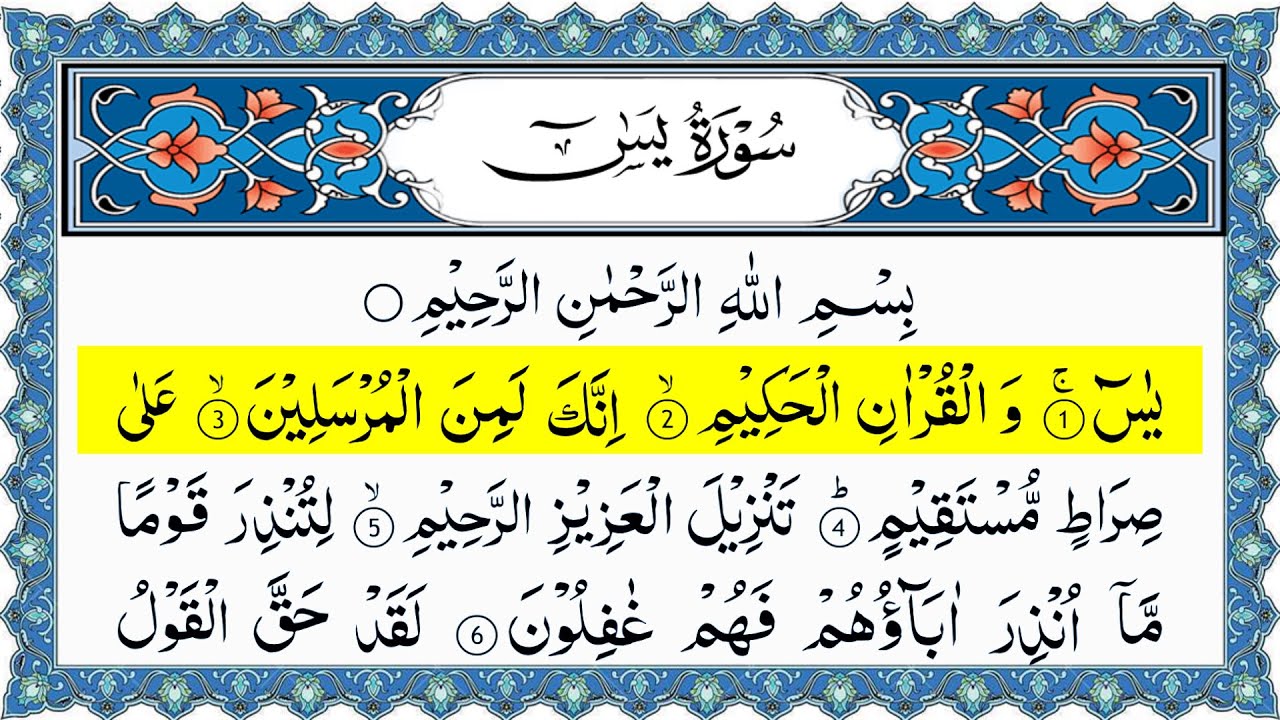 سُوْرَةُ يٰسٓ
بِسْمِ اللّٰهِ الرَّحْمٰنِ الرَّحِيْمِ ○
يٰسٓ ۚ ① وَ الْقُرْاٰنِ الْحَكِيْمِ ۙ ② اِنَّكَ لَمِنَ الْمُرْسَلِيْنَ ۙ ③ عَلٰى
صِرَاطٍ مُّسْتَقِيْمٍ ؕ ④ تَنْزِيْلَ الْعَزِيْزِ الرَّحِيْمِ ۙ ⑤ لِتُنْذِرَ قَوْمًا
مَّاۤ اُنْذِرَ اٰبَآؤُهُمْ فَهُمْ غٰفِلُوْنَ ⑥ لَقَدْ حَقَّ الْقَوْلُ